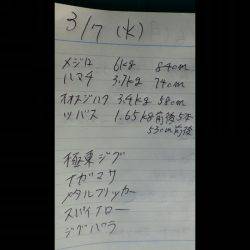 3/7 (火)
メジロ 6kg 840m
ハマチ 3.7kg 740m
オオスジハタ 3.4kg 580m
ツバス 1.65kg前後 5本
530m前後
極東ジグ
イガマサ
メタルフリッカー
スパイナロー
ジグパラ